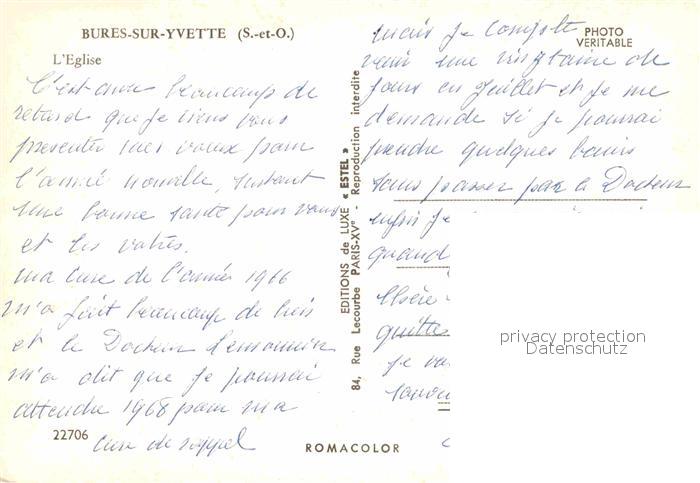 BURES-SUR-YVETTE (S.-et-O.)
L'Eglise
C'est avec beaucoup de
retard que je viens vous
presenter mes vœux pour
l'année nouvelle, surtout
une bonne santé pour vous
et les vôtres.
ma cure de l'année 1966
m'a fait beaucoup de bien
et le Docteur
m'a dit que je pourrai
attendre 1968 pour ma
cure de rappel
22706
ROMACOLOR
EDITIONS de LUXE « ESTEL »
84, Rue Lecourbe PARIS-XVe - Reproduction interdite
PHOTO
VERITABLE
mais je compte
venir une vingtaine de
jours en Juillet et je me
demande si je pourrai
prendre quelques bains
sans passer par le Docteur
enfin je
quand
quittes
je
privacy protection
Datenschutz